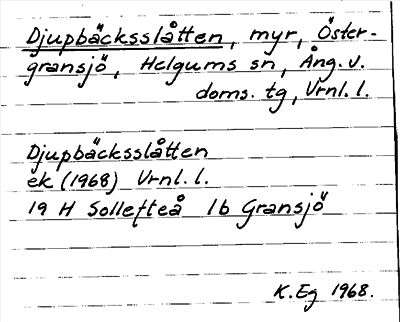 Djupbäcksslåtten, myr, Öster-
gransjö, Helgums sn, Ång. v.
doms. tg, Vrnl. l.
Djupbäcksslåtten
ek (1968) Vrnl. l.
19 H Sollefteå 1b Gransjö
K. Eg 1968.